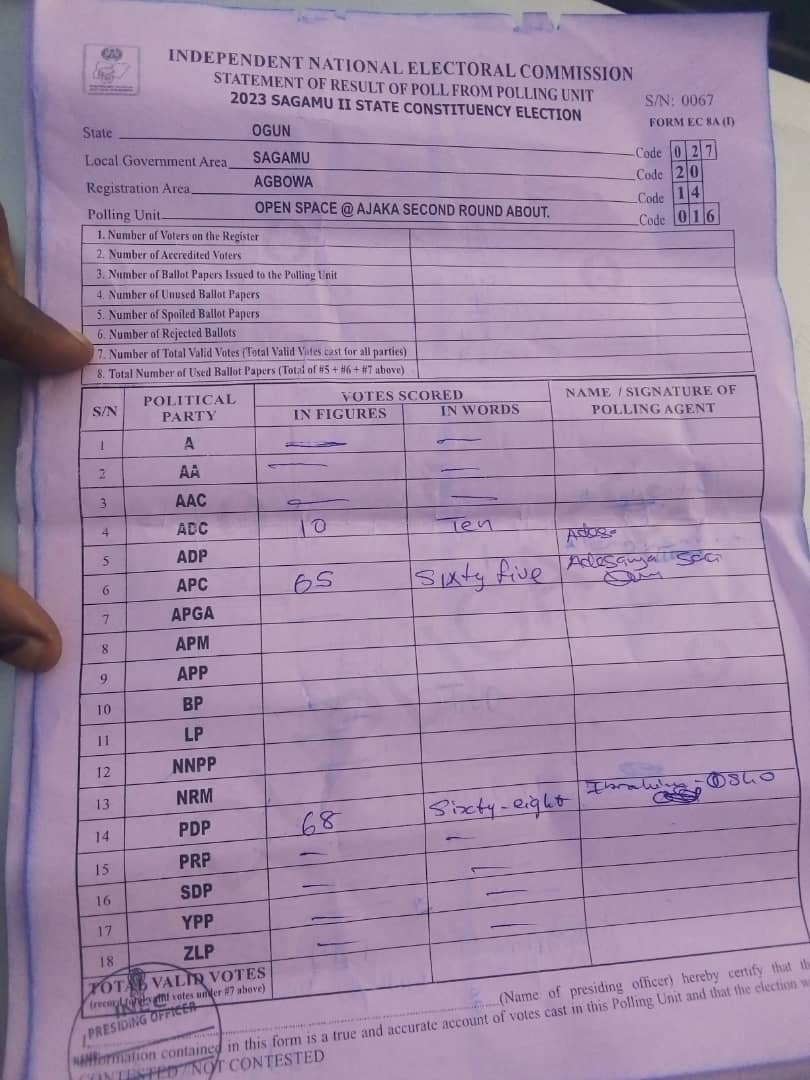 INDEPENDENT NATIONAL ELECTORAL COMMISSION
STATEMENT OF RESULT OF POLL FROM POLLING UNIT
2023 SAGAMU II STATE CONSTITUENCY ELECTION
S/N: 0067
FORM EC 8A (I)
State OGUN Code 027
Local Government Area SAGAMU Code 20
Registration Area AGBOWA Code 14
Polling Unit OPEN SPACE @ AJAKA SECOND ROUND ABOUT. Code 016
1. Number of Voters on the Register
2. Number of Accredited Voters
3. Number of Ballot Papers Issued to the Polling Unit
4. Number of Unused Ballot Papers
5. Number of Spoiled Ballot Papers
6. Number of Rejected Ballots
7. Number of Total Valid Votes (Total Valid Votes cast for all parties)
8. Total Number of Used Ballot Papers (Total of #5 + #6 + #7 above)
S/N POLITICAL PARTY VOTES SCORED NAME / SIGNATURE OF POLLING AGENT
IN FIGURES IN WORDS
1 A — —
2 AA — —
3 AAC — —
4 ADC 10 Ten
5 ADP
6 APC 65 Sixty five Adesanya
7 APGA
8 APM
9 APP
10 BP
11 LP
12 NNPP
13 NRM
14 PDP 68 Sixty-eight Ibrahim
15 PRP — —
16 SDP — —
17 YPP — —
18 ZLP — —
TOTAL VALID VOTES
votes under #7 above)
INEC
PRESIDING OFFICER
(Name of presiding officer) hereby certify that
information contained in this form is a true and accurate account of votes cast in this Polling Unit and that the election
CONTESTED / NOT CONTESTED